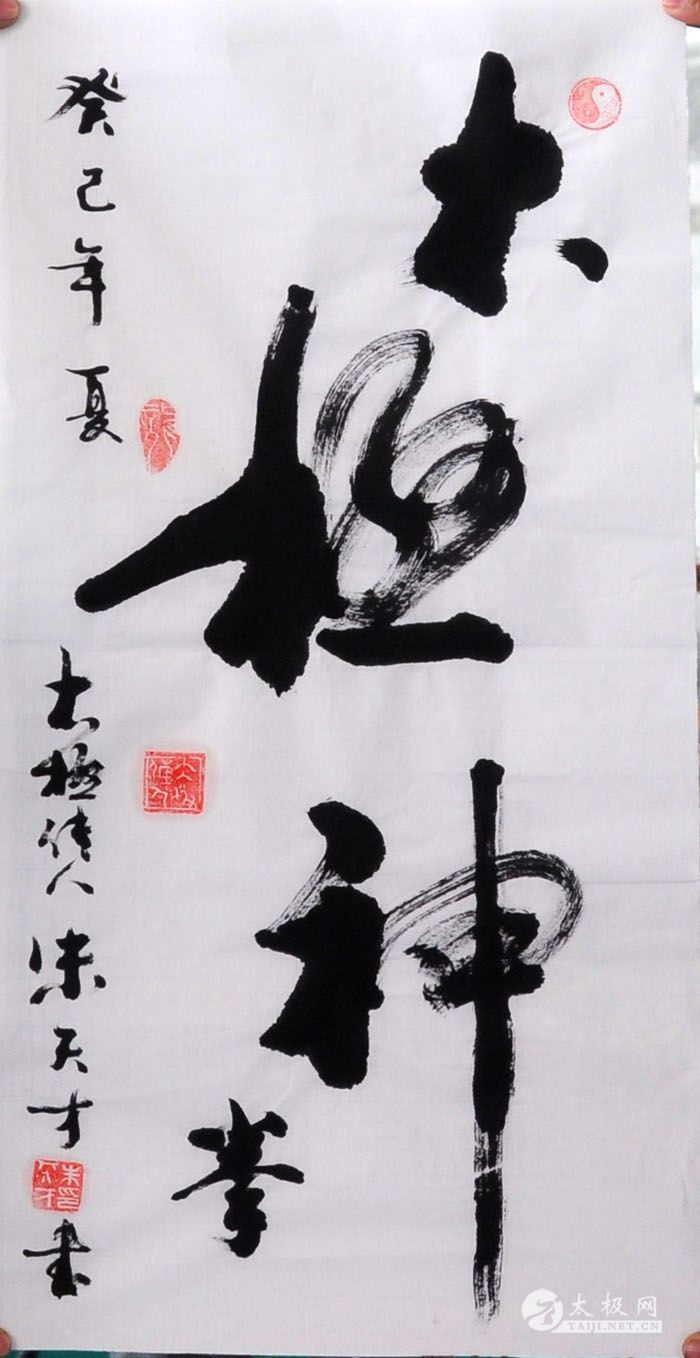 太極神拳
癸巳年夏
太極傳人朱天才書
太极网
TAIJI.NET.CN